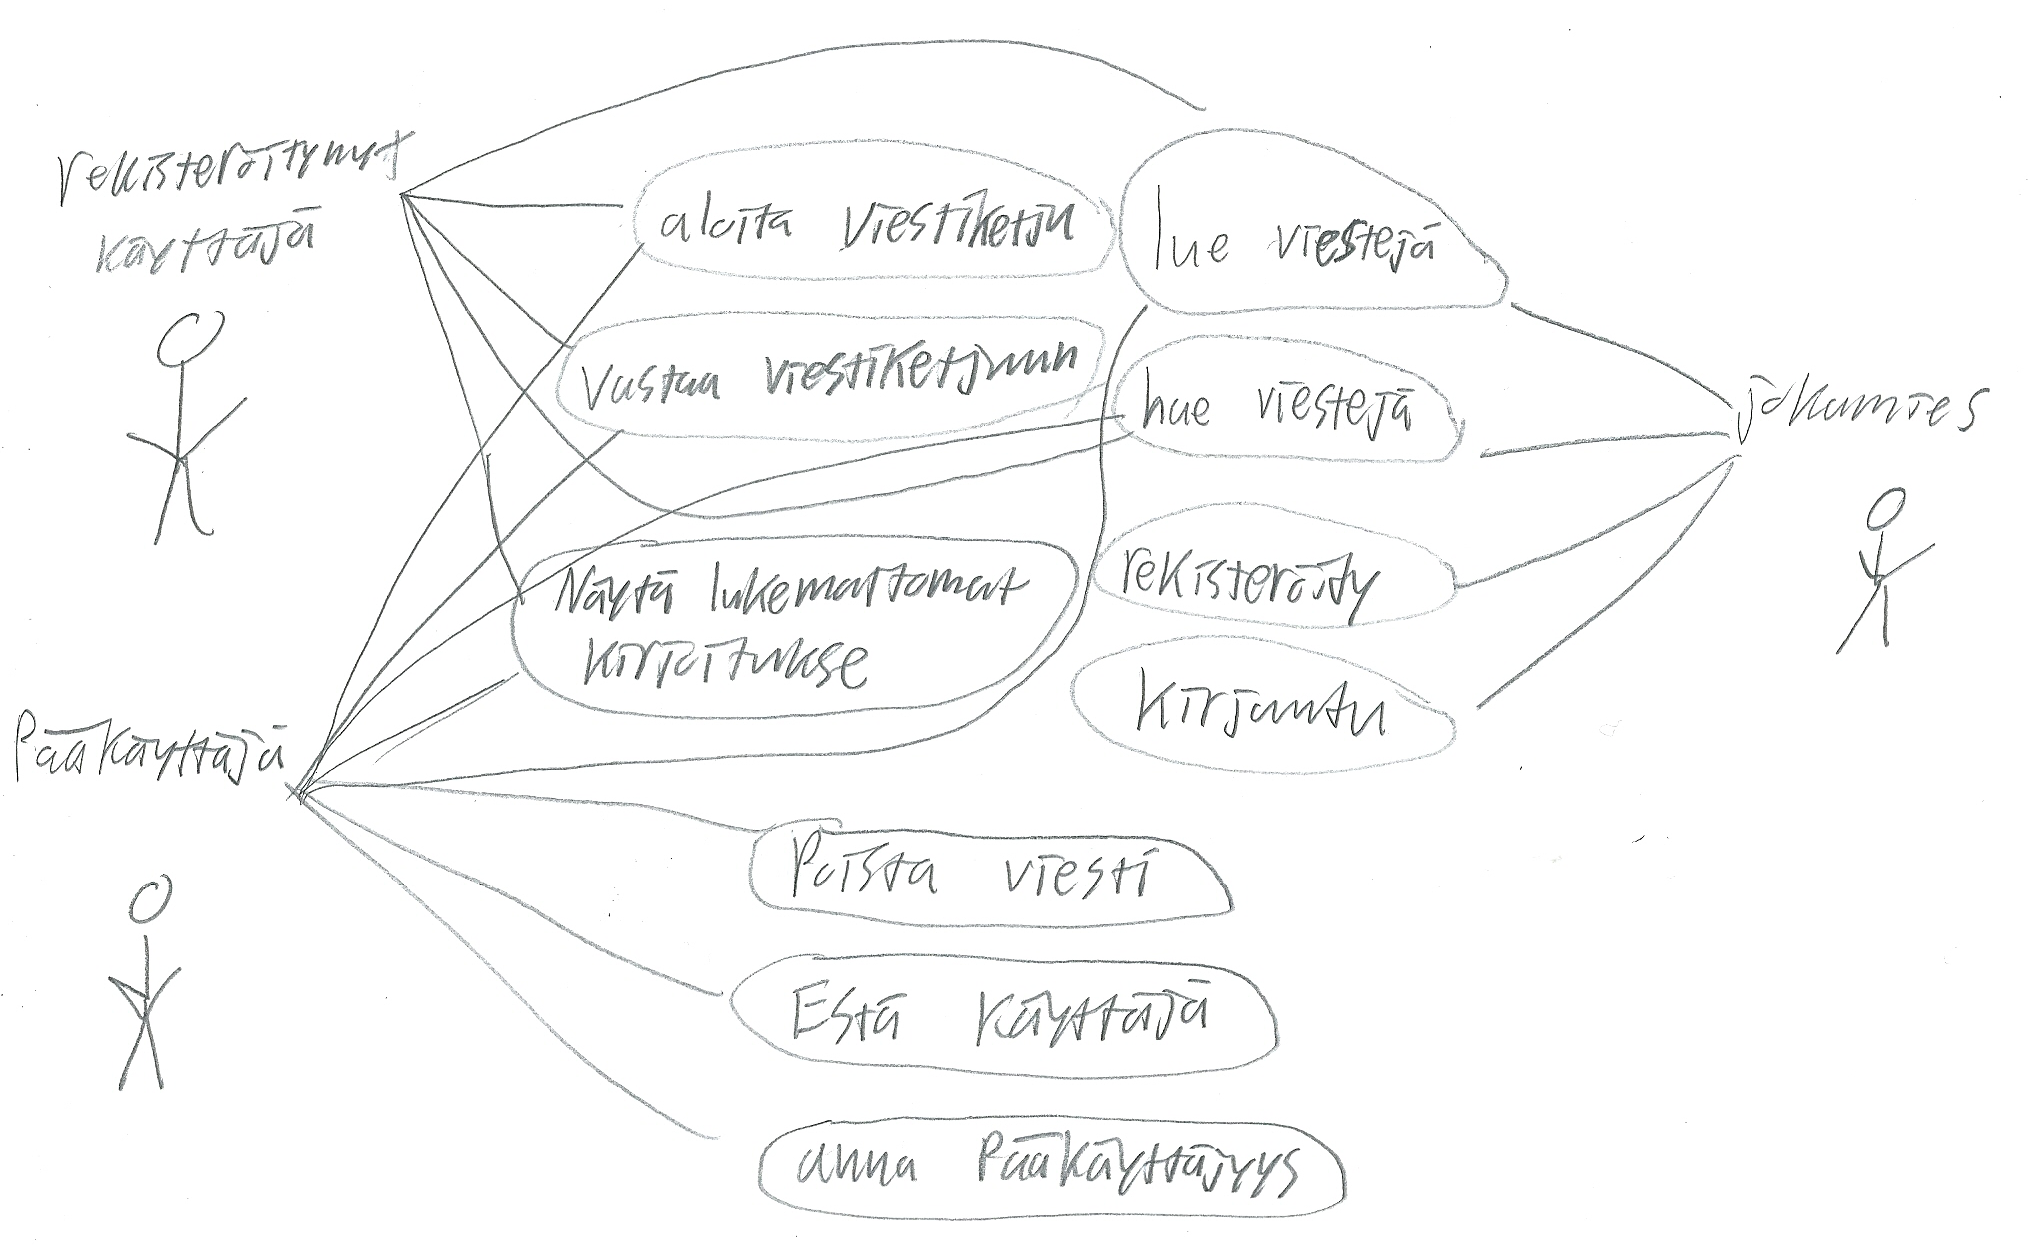 rekisteröitynyt
käyttäjä
aloita viestiketju
lue viestejä
vastaa viestiketjuun
hae viestejä
jokamies
Näytä lukemattomat
kirjoitukse
rekisteröidy
kirjaudu
Pääkäyttäjä
Poista viesti
Estä käyttäjä
anna Pääkäyttäjyys